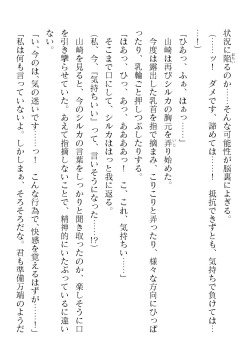 状況に陥るのか……そんな可能性が脳裏によぎる。
(……ッ！　ダメです、諦めては……！　抵抗できずとも、気持ちで負けては…
…！)
「ひあっ、ふぁ、はぁっ……」
山崎は再びシルカの胸元を弄り始めた。
今度は露出した乳首を指で摘まみ、こりこりと弄ったり、様々な方向にひっぱ
ったり、乳輪ごと押しつぶしたりする。
「はあっ、ひっ、あっ、あああああっ！　こ、これ、気持ちい……」
そこまで口にして、シルカはほっと我に返る。
(私、今、『気持ちいい』って、言いそうになった……!?)
山崎を見ると、今のシルカの言葉をしっかりと聞き取ったのか、楽しそうに口
を引き攣らせていた。あえて指摘しないことで、精神的にいたぶっているに違い
ない。
「い、今のは、気の迷いです……っ！　こんな行為で、快感を覚えるはずが……！」
「私は何も言っていないよ。しかしまぁ、そろそろだな。君も準備万端のようだ